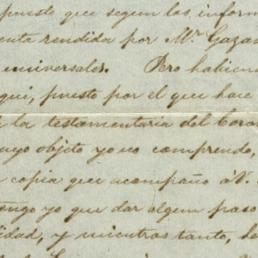 puesto que segun los inform
enta rendida por Mr. Gazan
universales. Pero habiend
qui, puesto por el que hace
la testamentaria del Coro
uyo objeto yo no comprendo,
copia que acompaño á V.
engo yo que dar algun paso
idad, y mientras tanto, he